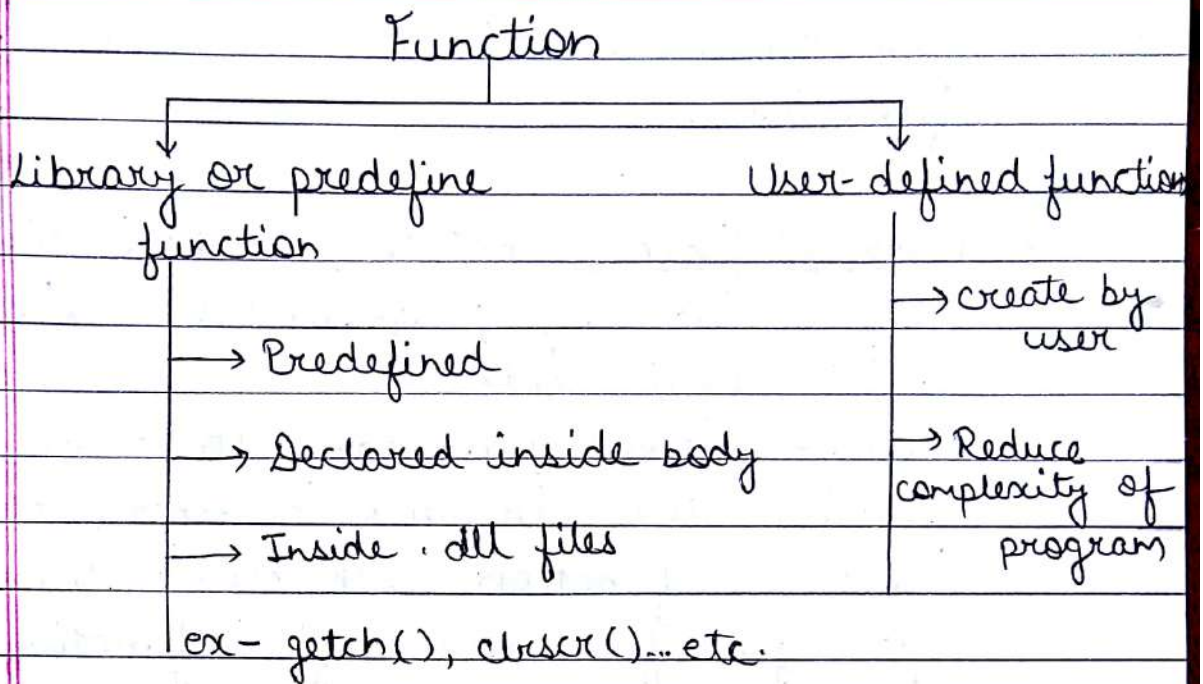 Function
Library or predefine
function
→ Predefined
→ Declared inside body
→ Inside .dll files
ex- getch(), clrscr()... etc.
User-defined function
→ create by
user
→ Reduce
complexity of
program